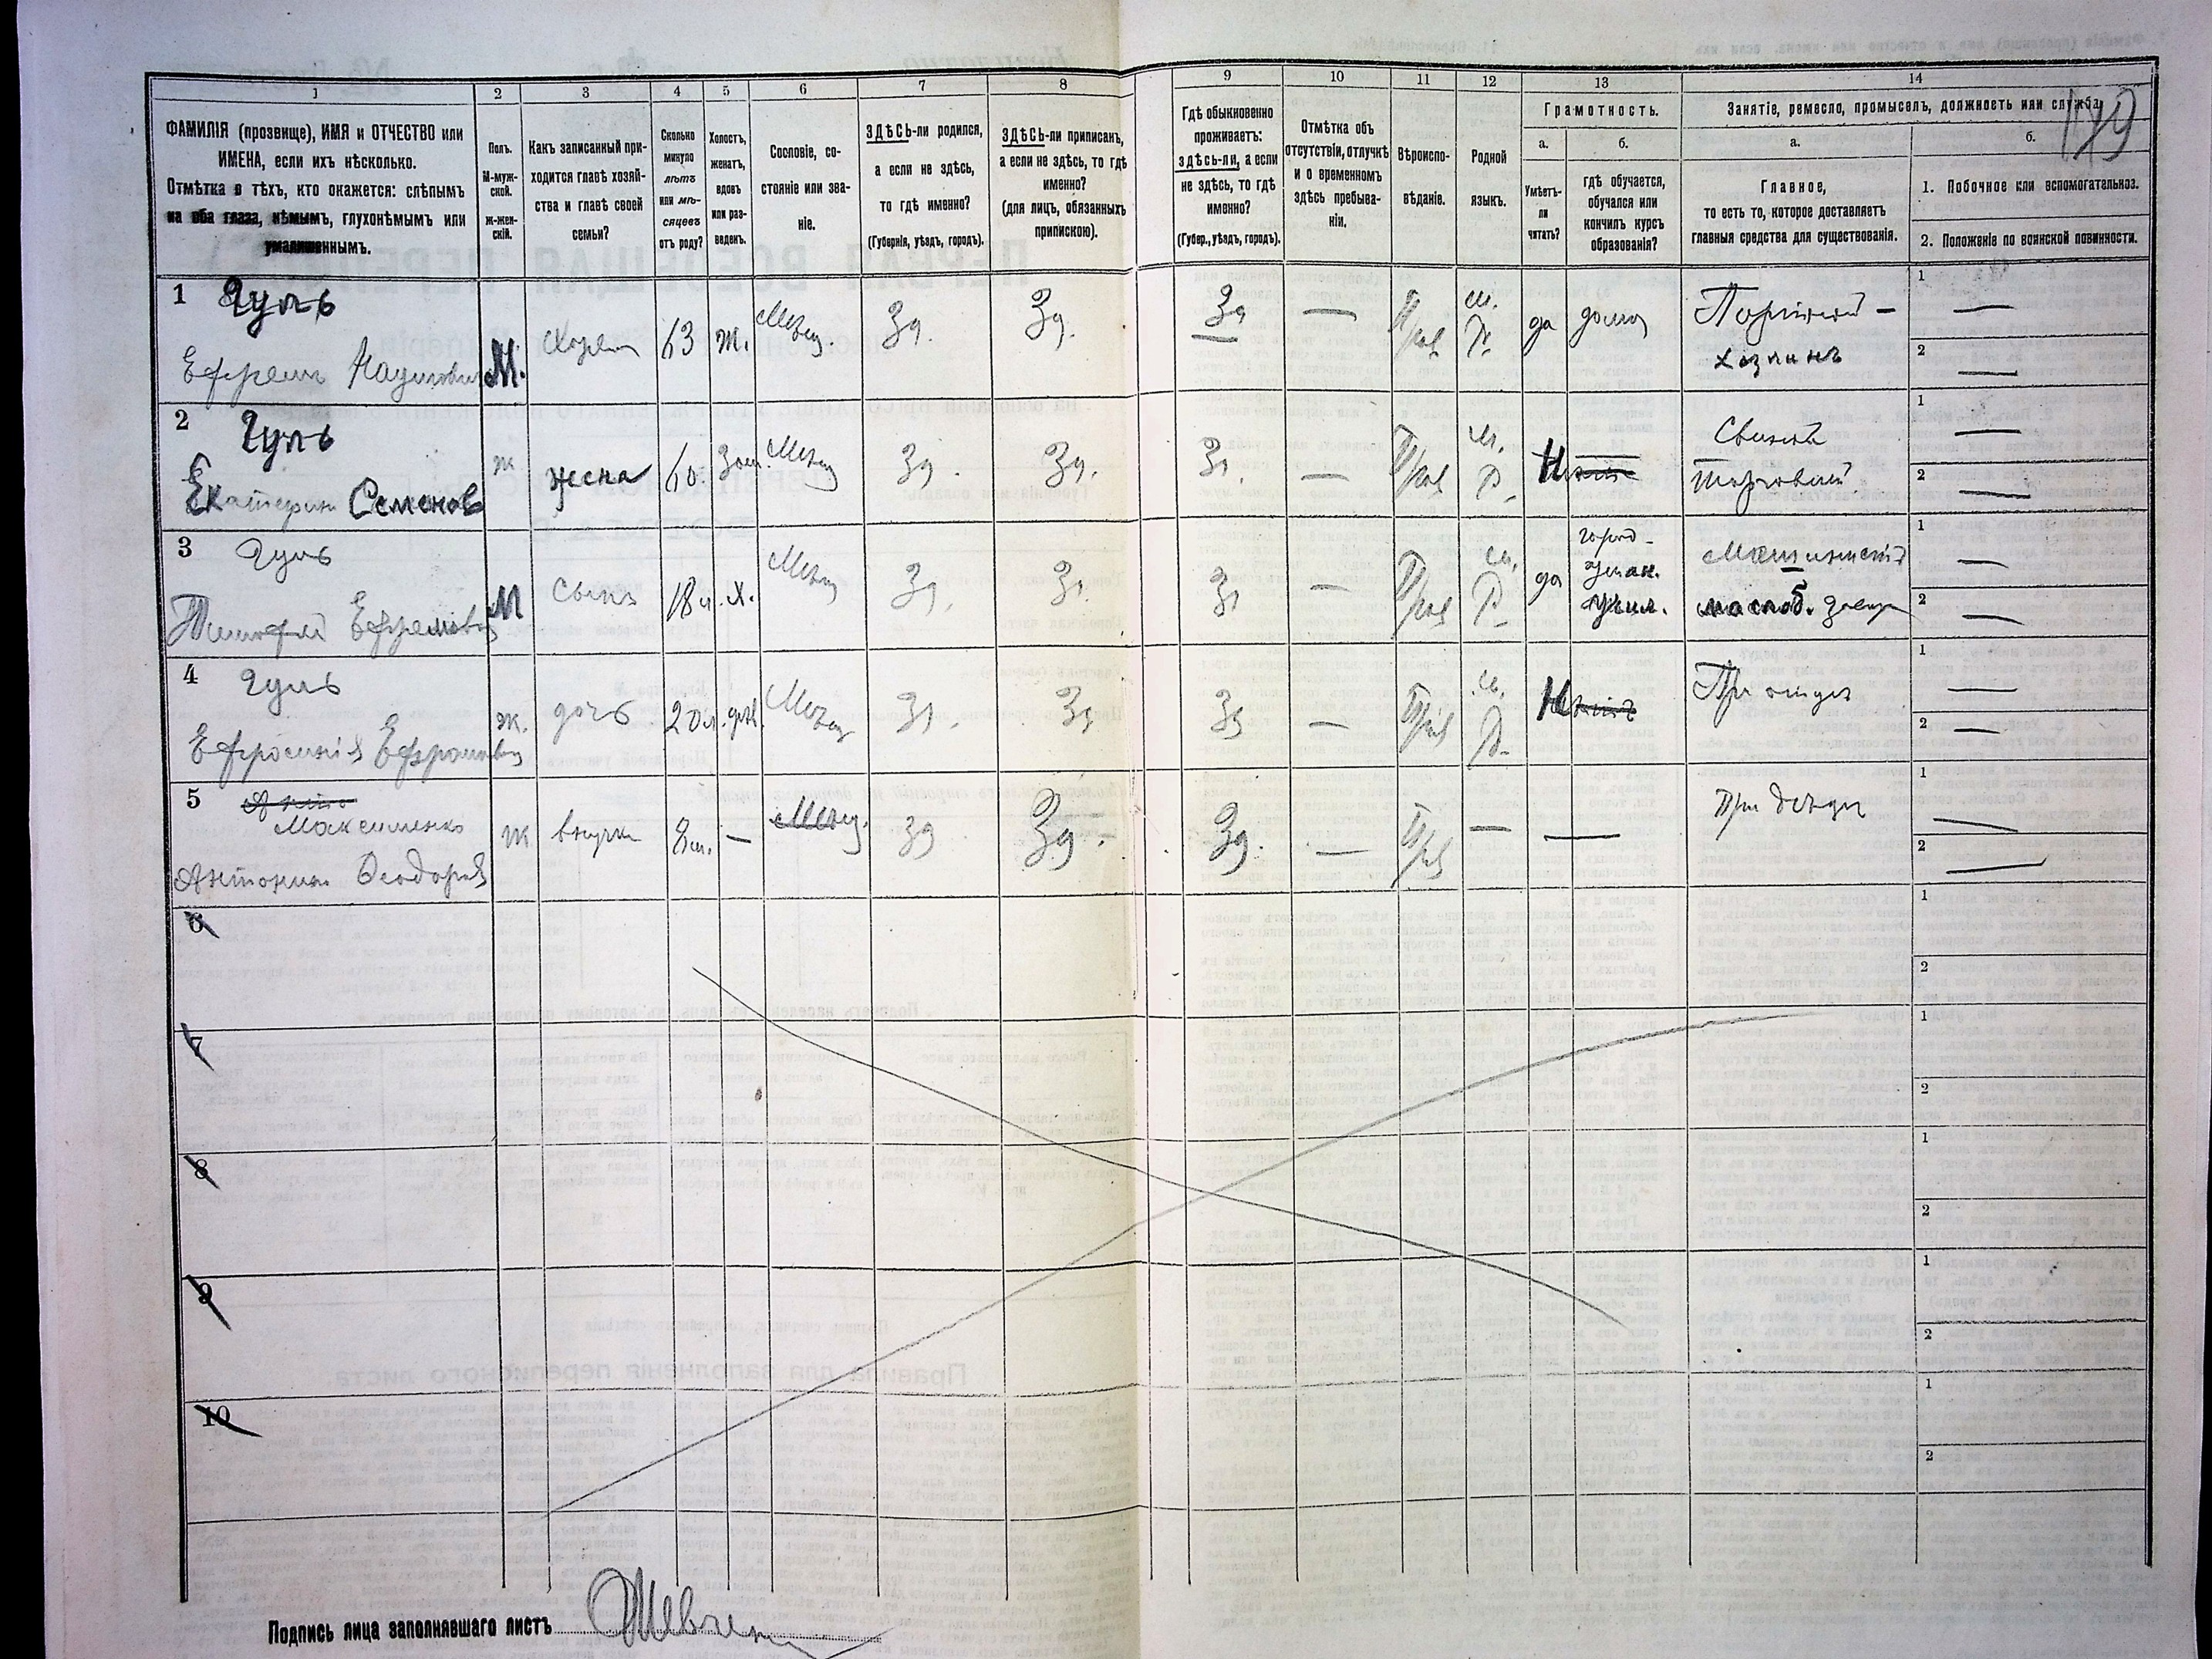 1 2 3 4 5 6 7 8 9 10 11 12 13 14
179
ФАМИЛІЯ (прозвище), ИМЯ и ОТЧЕСТВО или
ИМЕНА, если ихъ нѣсколько.
Отмѣтка о тѣхъ, кто окажется: слѣпымъ
на оба глаза, нѣмымъ, глухонѣмымъ или
умалишеннымъ.
Полъ.
М-муж-
ской.
ж-жен-
скій.
Какъ записанный при-
ходится главѣ хозяй-
ства и главѣ своей
семьи?
Сколько
минуло
лѣтъ
или мѣ-
сяцевъ
отъ роду?
Холостъ,
женатъ,
вдовъ
или раз-
веденъ.
Сословіе, со-
стояніе или зва-
ніе.
ЗДѢСЬ-ли родился,
а если не здѣсь,
то гдѣ именно?
(Губернія, уѣздъ, городъ).
ЗДѢСЬ-ли приписанъ,
а если не здѣсь, то гдѣ
именно?
(для лицъ, обязанныхъ
припискою).
Гдѣ обыкновенно
проживаетъ:
здѣсь-ли, а если
не здѣсь, то гдѣ
именно?
(Губер., уѣздъ, городъ).
Отмѣтка объ
отсутствіи, отлучкѣ
и о временномъ
здѣсь пребыва-
ніи.
Вѣроиспо-
вѣданіе.
Родной
языкъ.
Грамотность.
а.
Умѣетъ-
ли
читать?
б.
гдѣ обучается,
обучался или
кончилъ курсъ
образованія?
Занятіе, ремесло, промыселъ, должность или служба.
а.
Главное,
то есть то, которое доставляетъ
главныя средства для существованія.
б.
1. Побочное или вспомогательное.
2. Положеніе по воинской повинности.
1 Гуль
Ефремъ Наумовичъ М. 63 ж. Мѣщ. Зд. Зд. Зд — Прав м. Р. да дома
хозяинъ
1 —
2 —
2 Гуль
Екатерина Семенов ж жена 60. Зам. Мѣщ Зд. Зд. Зд. — Прав м. Р. Н —
1 —
2 —
3 Гуль
Тимофей Ефремовъ М Сынъ 18 л. х. Мѣщ Зд. Зд. Зд — Прав м. Р. да
город-
учил.
1 —
2 —
4 Гуль
Ефросинія Ефремовъ ж. дочь 20 л. дѣв. Мѣщ Зд. Зд Зд — Прав м. Р. Н
При отцѣ
1 —
2 —
5 Максименко
Антонина Ѳеодоров ж внучка 8 м. — Мѣщ. Зд Зд. Зд. — Прав — —
При дѣдѣ
1 —
2 —
6
1
2
7
1
2
8
1
2
9
1
2
10
1
2
Подпись лица заполнявшаго листъ